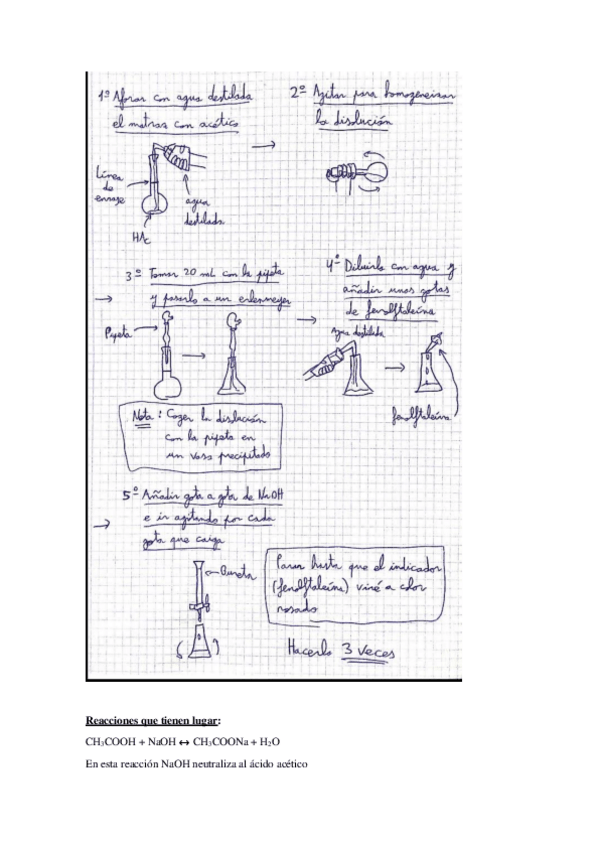 1º Aforar con agua destilada
el matraz con acético
2º Agitar para homogeneizar
la disolución
Línea
de
enrase
agua
destilada
HAc
3º Tomar 20 mL con la pipeta
y pasarlo a un erlenmeyer
4º Diluirlo con agua y
añadir unas gotas
de fenolftaleína
Pipeta
Agua destilada
fenolftaleína
Nota: Coger la disolución
con la pipeta en
un vaso precipitado
5º Añadir gota a gota de NaOH
e ir agitando por cada
gota que caiga
Bureta
Parar hasta que el indicador
(fenolftaleína) viré a color
rosado
Hacerlo 3 veces
Reacciones que tienen lugar:
CH3COOH + NaOH ↔ CH3COONa + H2O
En esta reacción NaOH neutraliza al ácido acético